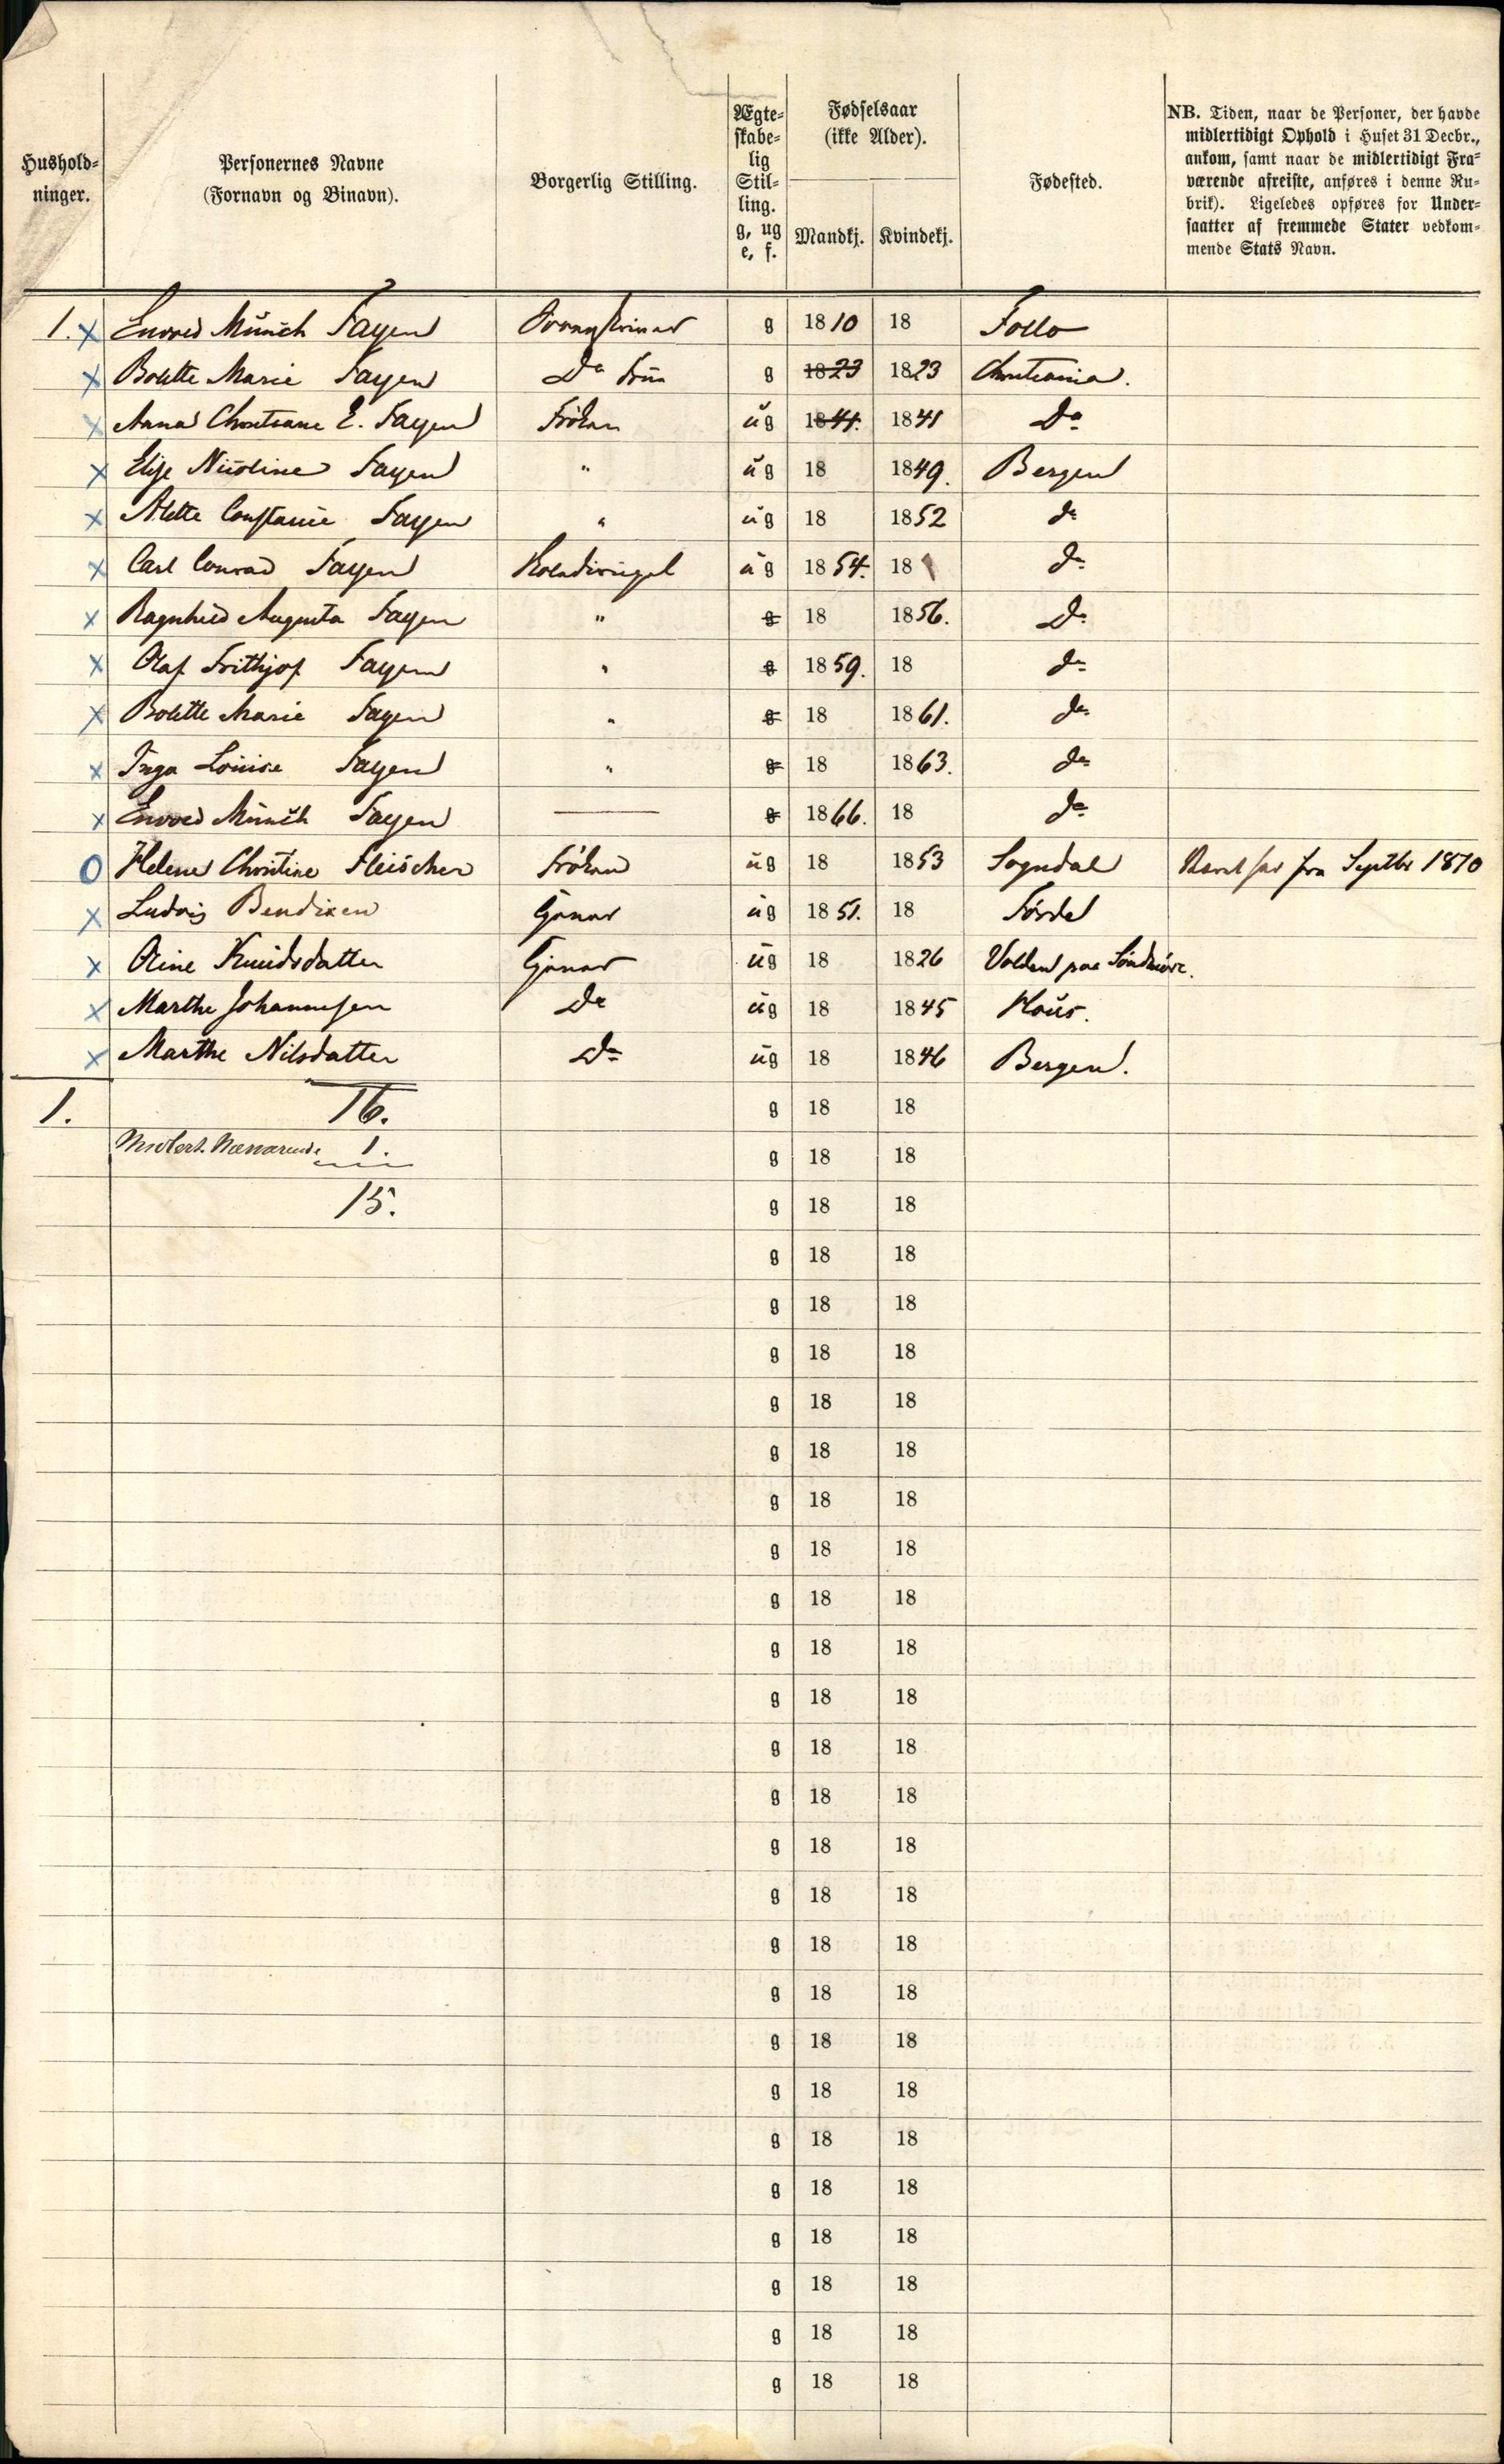 Hushold-
ninger.
Personernes Navne
(Fornavn og Binavn).
Borgerlig Stilling.
Ægte-
skabe-
lig
Stil-
ling.
g, ug
e, f.
Fødselsaar
(ikke Alder).
Mandkj.
Kvindekj.
Fødested.
NB. Tiden, naar de Personer, der havde
midlertidigt Ophold i Huset 31 Decbr.,
ankom, samt naar de midlertidigt Fra-
værende afreiste, anføres i denne Ru-
brik). Ligeledes opføres for Under-
saatter af fremmede Stater vedkom-
mende Stats Navn.
1. x Münch Fayen g 1810 18 Follo
x Bolette Marie Fayen Do Frue g 1823 1823 Christiania.
x Anna Christiane E. Fayen Frøken ug 1841. 1841 Do
x Elise Nicoline Fayen " ug 18 1849. Bergen
x Alette Constance Fayen " ug 18 1852 do
x Carl Conrad Fayen ug 1854. 18 do
x Ragnhild Augusta Fayen " g 18 1856. Do
x Olaf Frithjof Fayen " g 1859. 18 do
x Bolette Marie Fayen " g 18 1861. do
x Inga Louise Fayen " g 18 1863. do
x Münch Fayen — g 1866. 18 do
O Helene Christine Fleischer Frøken ug 18 1853 Sogndal fra Septbr 1870
x Ludvig Bendixen ug 1851. 18 Førde
x Oline Knudsdatter ug 18 1826 Volden paa Søndmøre.
x Marthe Johannesen Do ug 18 1845 Hous.
x Marthe Nilsdatter Do ug 18 1846 Bergen.
1. 16. g 18 18
Midlert. Nærværende 1. g 18 18
15. g 18 18
g 18 18
g 18 18
g 18 18
g 18 18
g 18 18
g 18 18
g 18 18
g 18 18
g 18 18
g 18 18
g 18 18
g 18 18
g 18 18
g 18 18
g 18 18
g 18 18
g 18 18
g 18 18
g 18 18
g 18 18
g 18 18
g 18 18
g 18 18
g 18 18